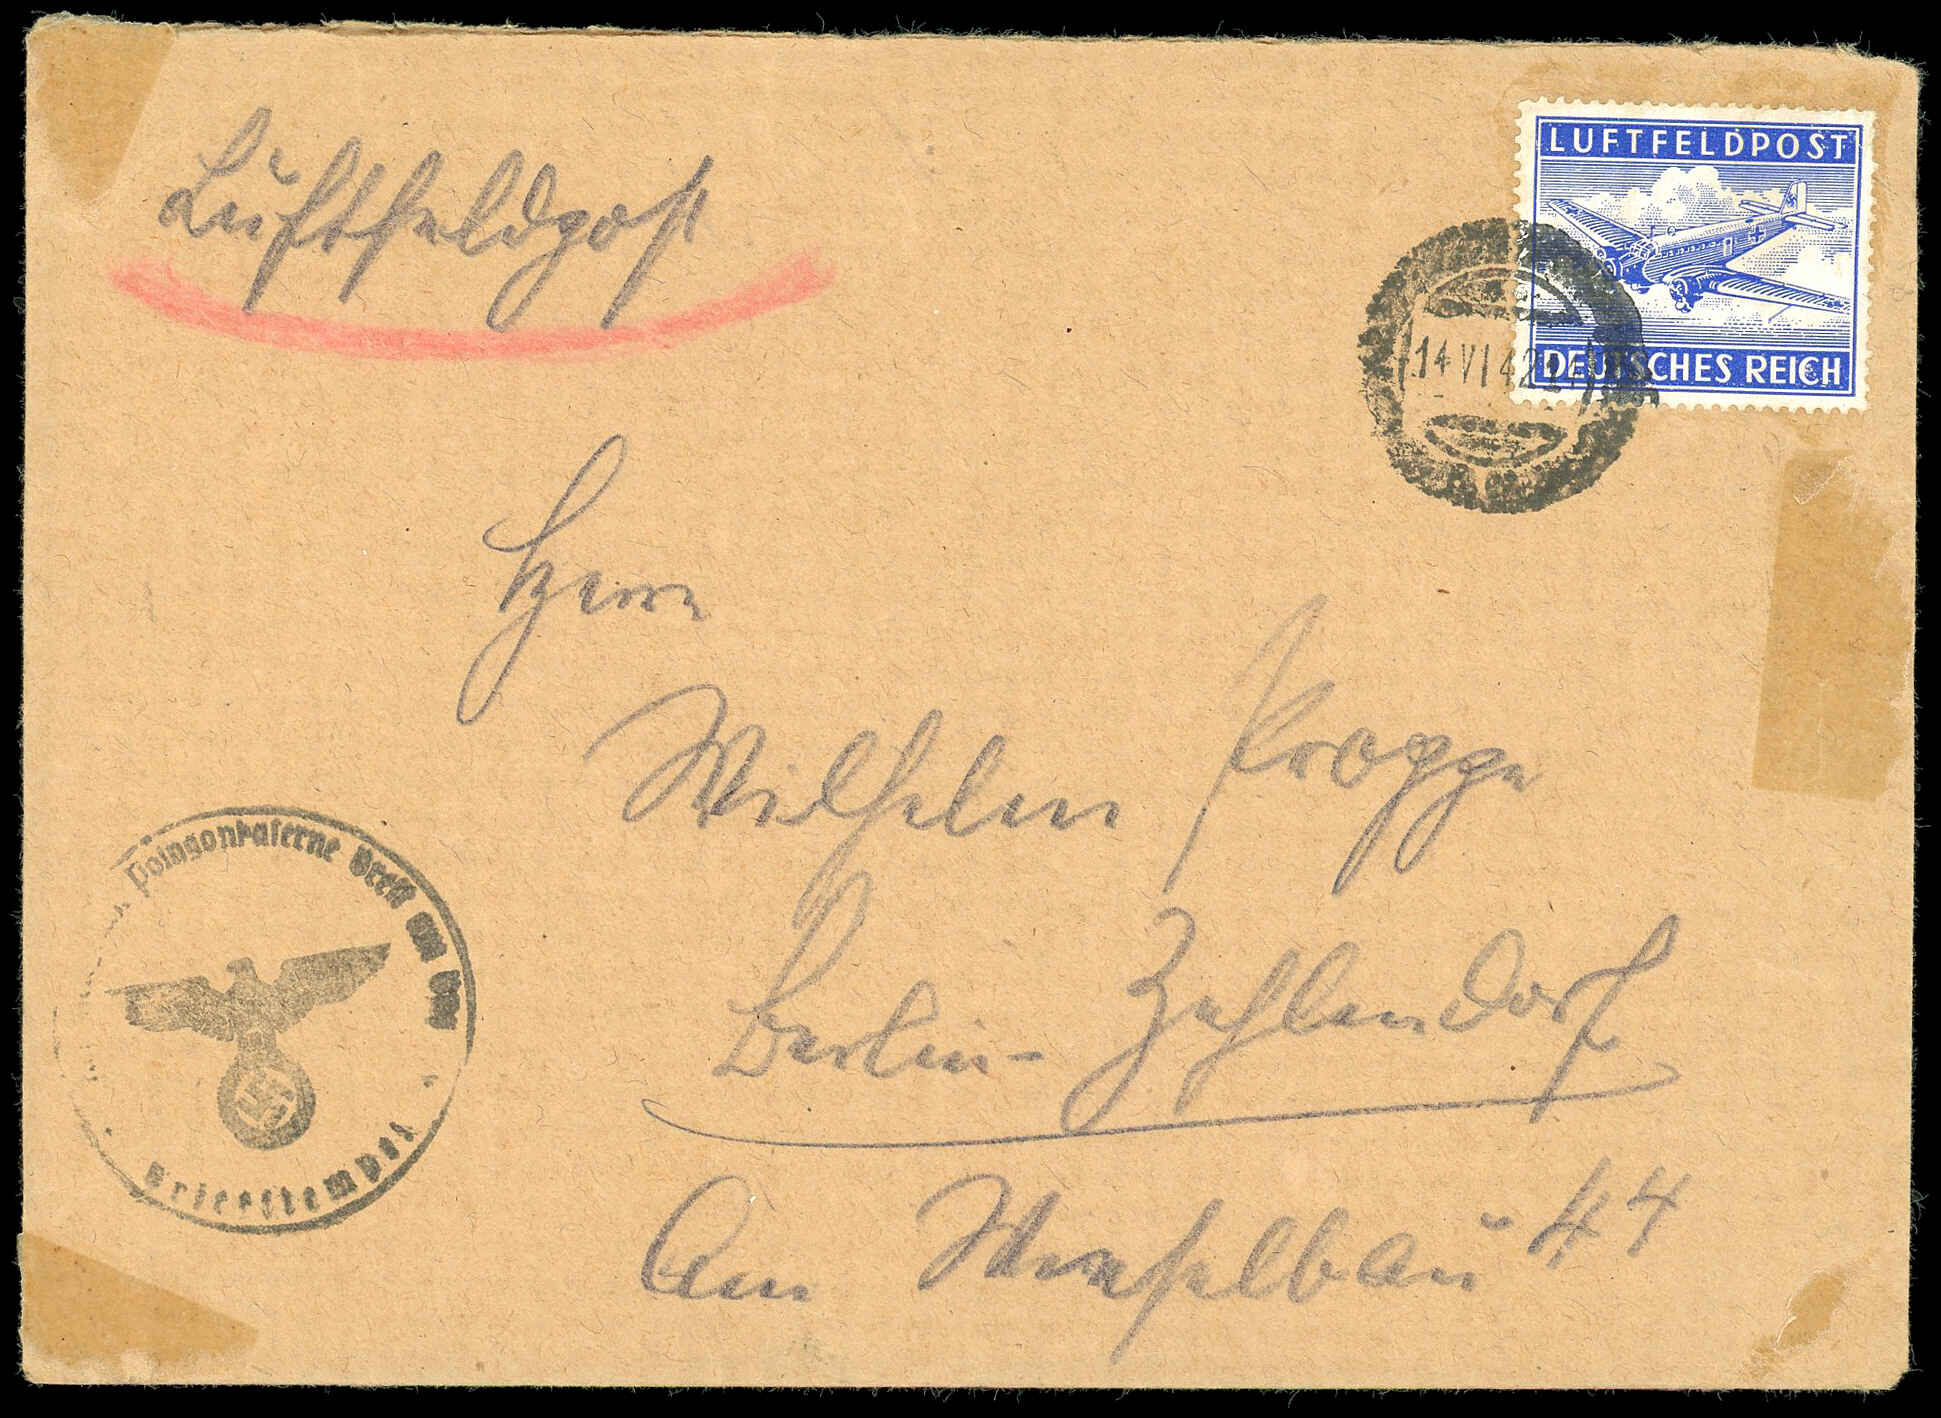 Luftfeldpost
LUFTFELDPOST
DEUTSCHES REICH
14 VI 42
Herrn
Wilhelm Progge
Berlin-Zehlendorf
Am 44
Brest am Bug
Briefstempel